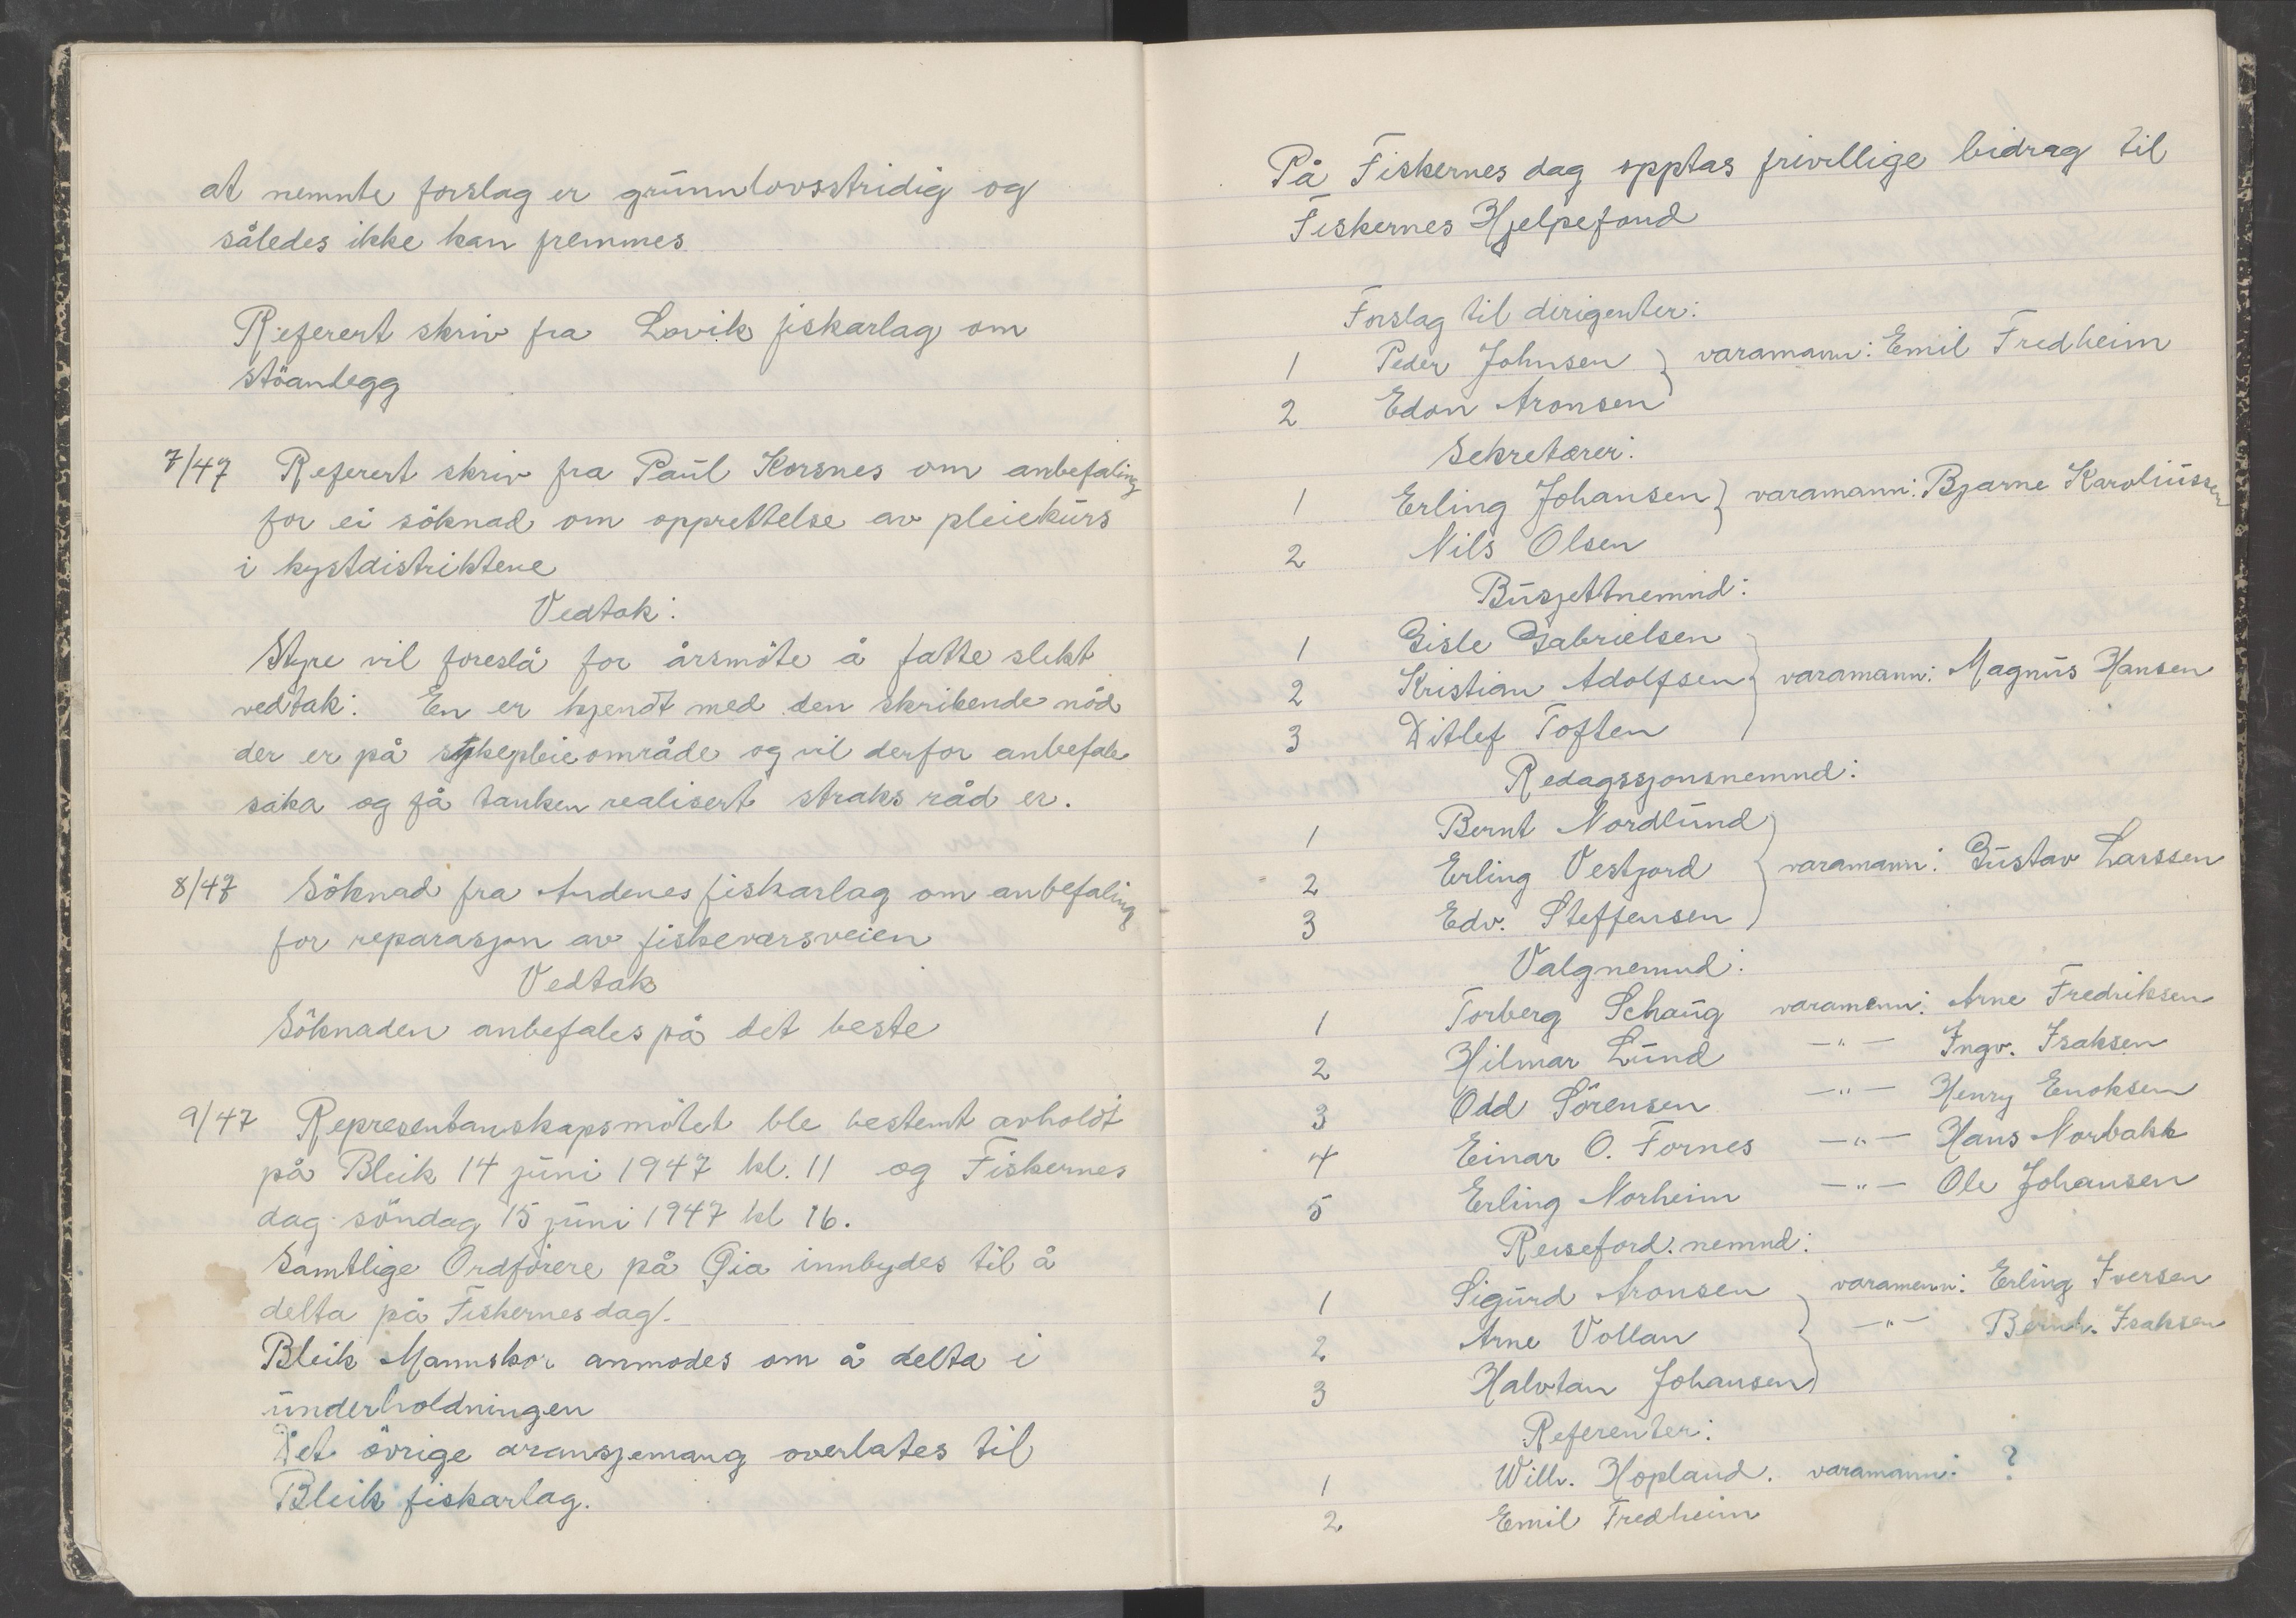 at nemnte forslag er grunnlovsstridig og
således ikke kan fremmes
Referert skriv fra Lovik fiskarlag om
stöanlegg
7/47 Referert skriv fra Paul Korsnes om anbefaling
for ei söknad om opprettelse av pleiekurs
i kystdistriktene
Vedtak:
Styre vil foreslå for årsmöte å fatte slikt
vedtak: En er kjendt med den skrikende nöd
der er på sykepleieområde og vil derfor anbefale
saka og få tanken realisert straks råd er.
8/47 Söknad fra Andenes fiskarlag om anbefaling
for reparasjon av fiskeværsveien
Vedtak
Söknaden anbefales på det beste
9/47 Representanskapsmötet ble bestemt avholdt
på Bleik 14 juni 1947 kl. 11 og Fiskernes
dag söndag 15 juni 1947 kl 16.
Samtlige Ordförere på Øia innbydes til å
delta på Fiskernes dag.
Bleik Mannskor anmodes om å delta i
underholdningen
Det övrige aransjemang overlates til
Bleik fiskarlag.
På Fiskernes dag opptas frivillige bidrag til
Fiskernes Hjelpefond
Forslag til dirigenter:
1 Peder Johnsen } varamann: Emil Fredheim
2 Edon Aronsen
Sekretærer:
1 Erling Johansen } varamann: Bjarne Karoliussen
2 Nils Olsen
Busjettnemnd:
1 Gisle Gabrielsen
2 Kristian Adolfsen } varamann: Magnus Hansen
3 Ditlef Toften
Redagssjonsnemnd:
1 Bernt Nordlund
2 Erling Vestjord } varamann: Gustav Larssen
3 Edv. Steffensen
Valgnemnd:
1 Torberg Schaug varamenn: Arne Fredriksen
2 Hilmar Lund —"— Ingv. Isaksen
3 Odd Sörensen —"— Henry Enoksen
4 Einar O. Fornes —"— Hans Norbakk
5 Erling Norheim —"— Ole Johansen
Reiseford. nemnd:
1 Sigurd Aronsen } varamenn: Erling Iversen
2 Arne Vollan —"— Bernh. Isaksen
3 Halvtan Johansen
Referenter:
1 Willv. Hopland. varamann: ?
2 Emil Fredheim